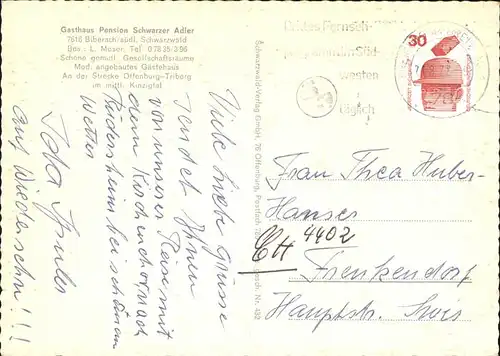 Gasthaus Pension Schwarzer Adler
7616 Biberach/südl. Schwarzwald
Bes.: L. Moser, Tel. 07835/396
Schöne gemütl. Gesellschaftsräume
Mod. angebautes Gästehaus
An der Strecke Offenburg-Triberg
im mittl. Kinzigtal
Viele liebe Grüsse
sendet Ihnen
von unserer Reise mit
dem Kirchenchor nach
Rüdesheim bei schönem
Wetter
Ida
auf Wiedersehn!!!
Schwarzwald-Verlag GmbH, 76 Offenburg, Postfach
Nr. 432
Fernseh-
programm Süd-
westen
täglich
30
Frau Thea Huber-
Hanser
CH 4402
Frenkendorf
Hauptstr.